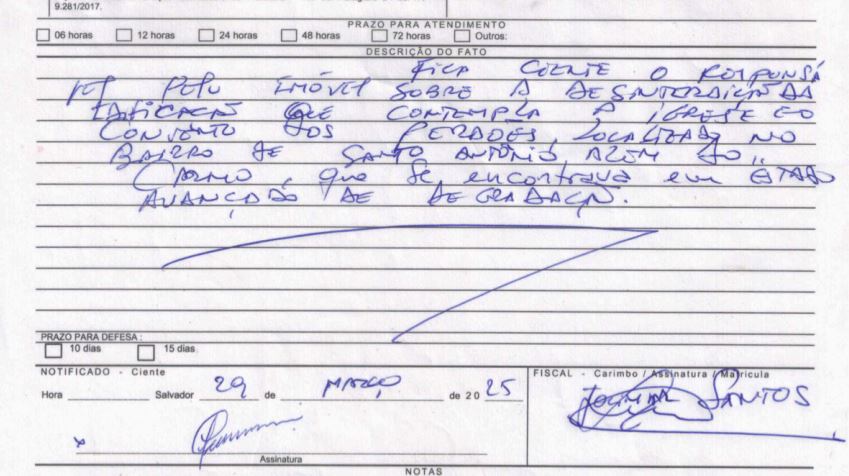 9.281/2017.
PRAZO PARA ATENDIMENTO
06 horas 12 horas 24 horas 48 horas 72 horas Outros:
DESCRIÇÃO DO FATO
FICA CIENTE O RESPONSÁ
VEL PELO IMÓVEL SOBRE A DESINTERDIÇÃO DA
EDIFICAÇÃO QUE CONTEMPLA A IGREJA E O
CONJUNTO DOS LOCALIZADA NO
BAIRRO DE SANTO ANTÔNIO ALÉM DO
CARMO, que se encontrava em ESTADO
AVANÇADO DE DEGRADAÇÃO.
PRAZO PARA DEFESA:
10 dias 15 dias
NOTIFICADO - Ciente
FISCAL - Carimbo / Assinatura / Matrícula
Hora Salvador 29 de MARÇO de 2025
SANTOS
x
Assinatura
NOTAS